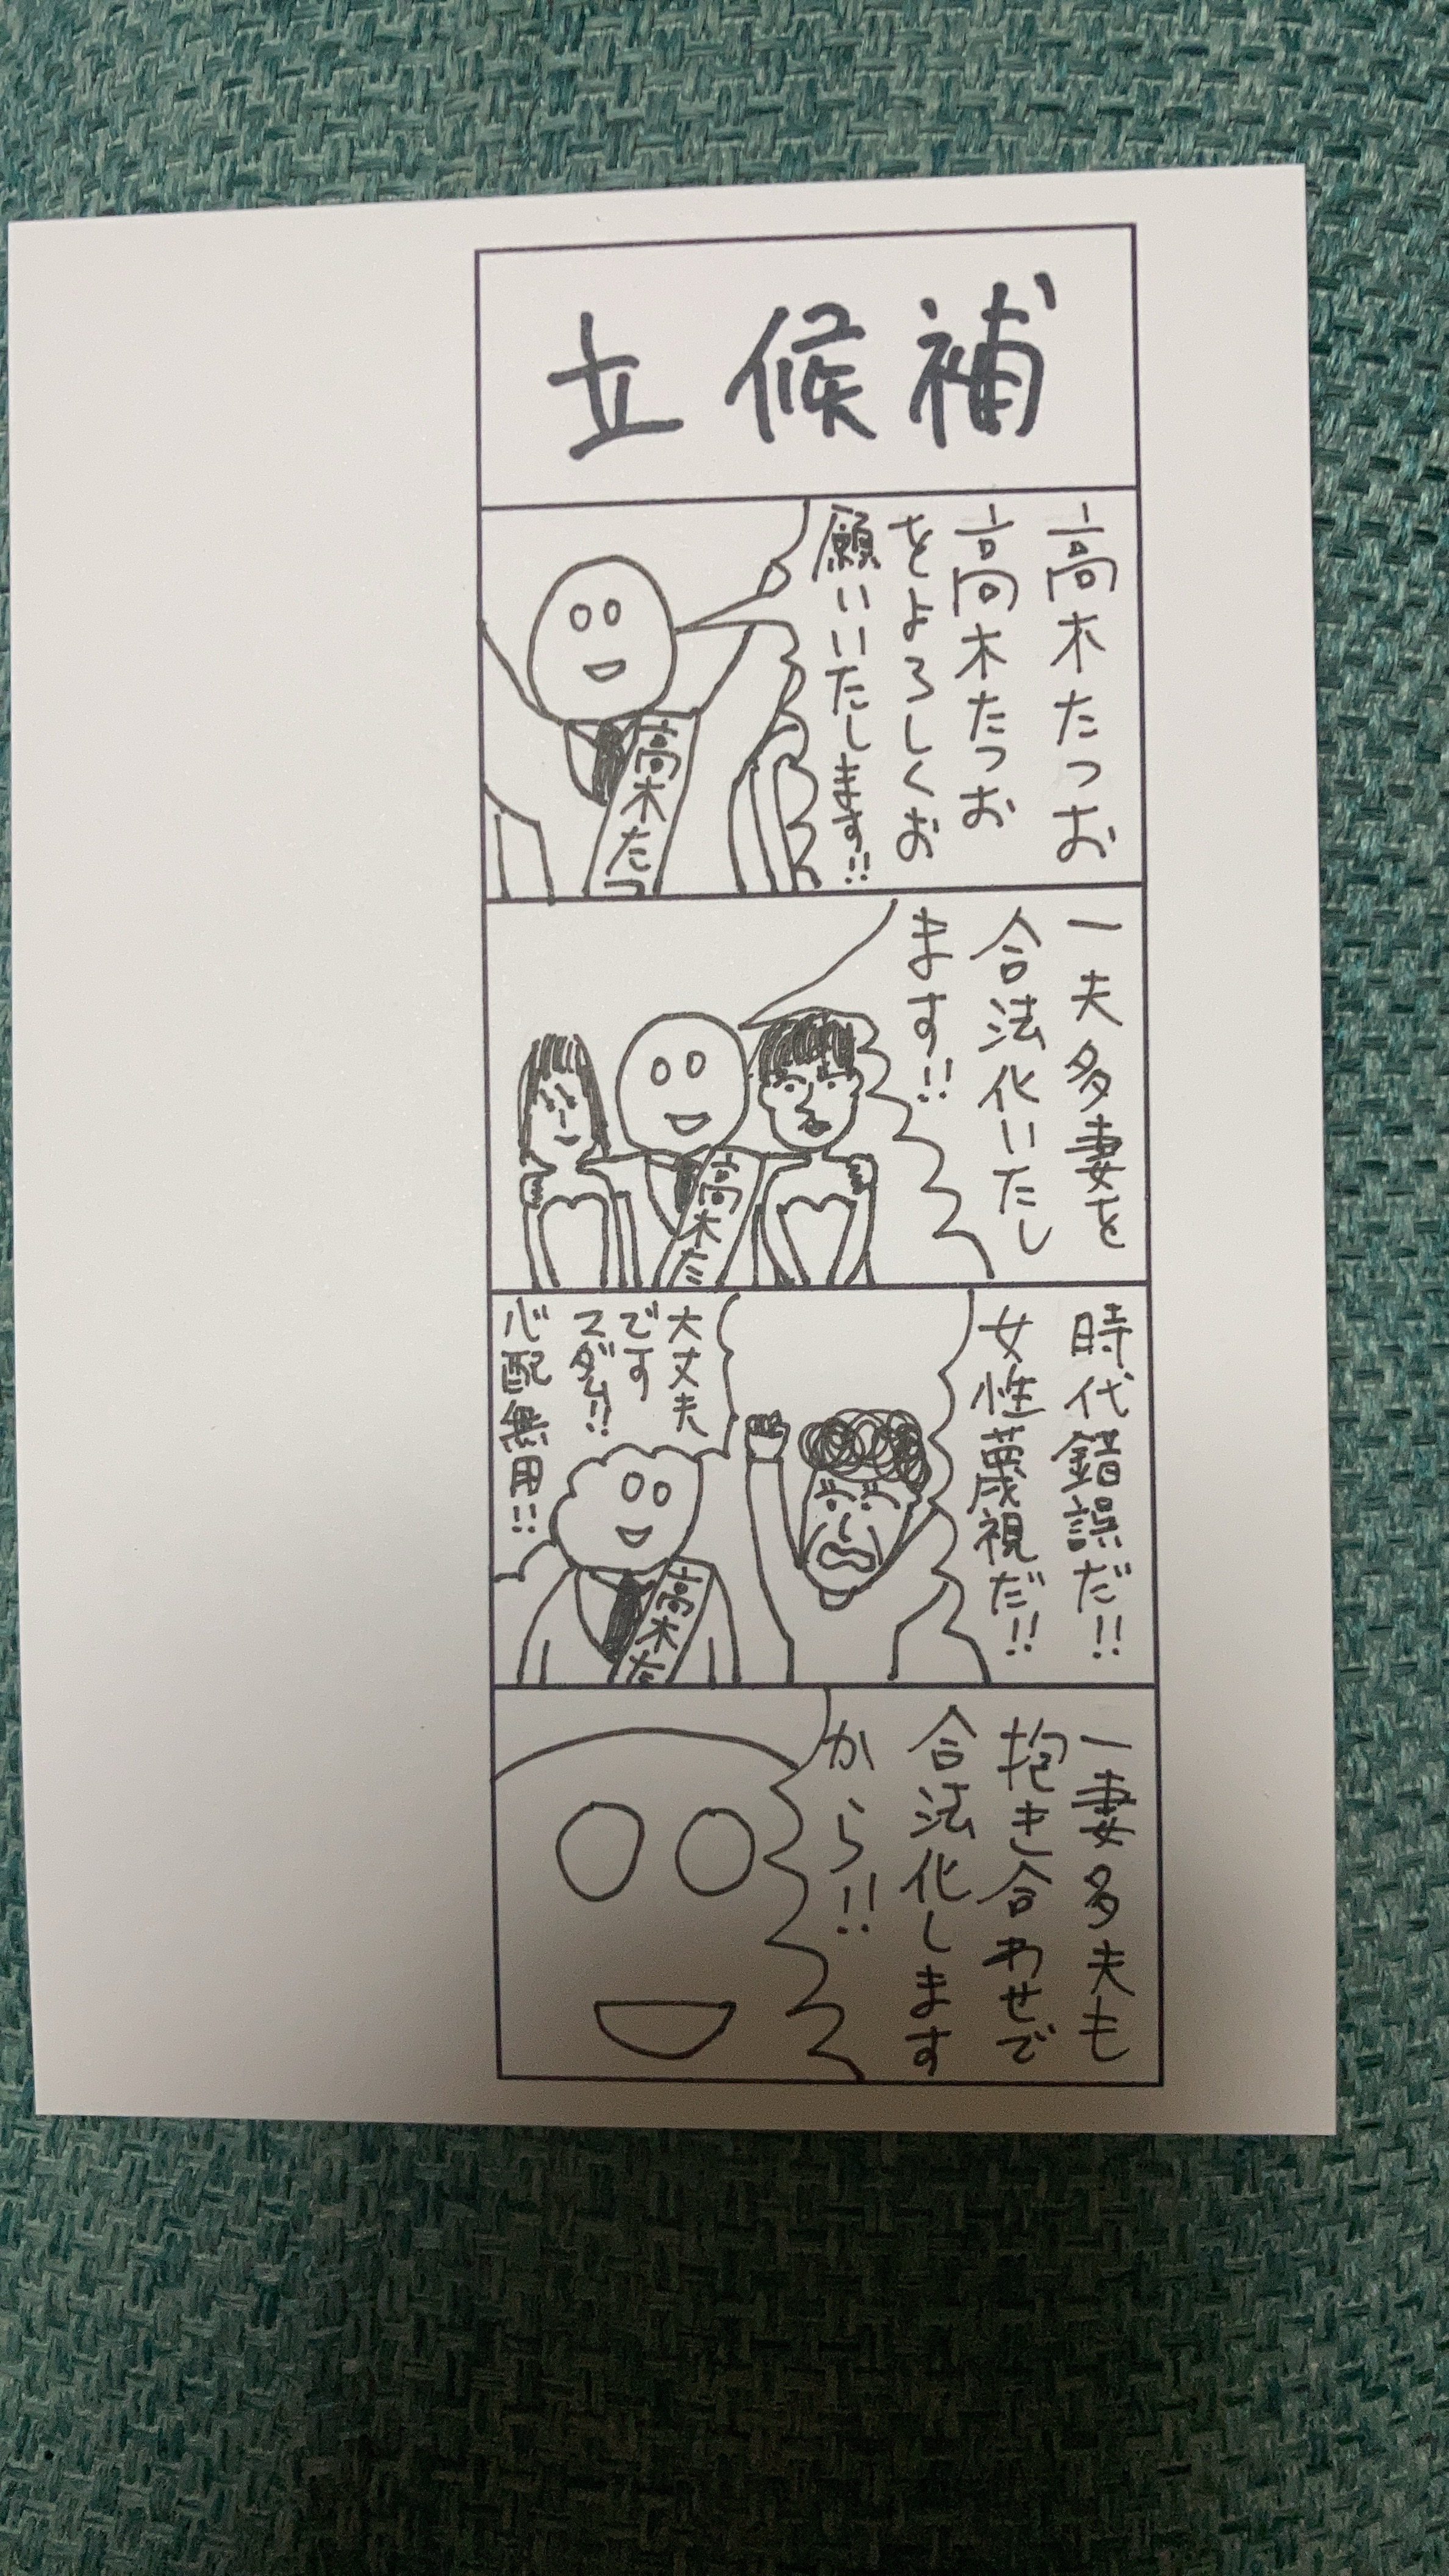 立候補
高木たつお
高木たつお
をよろしくお
願いいたします!!
高木たつ
一夫多妻を
合法化いたし
ます!!
高木た
時代錯誤だ!!
女性蔑視だ!!
大丈夫
です
マダム!!
心配無用!!
高木た
一妻多夫も
抱き合わせで
合法化します
から!!